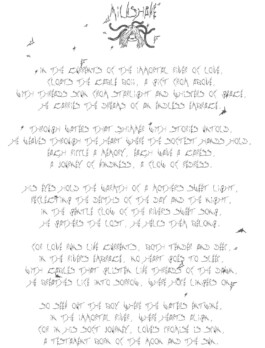 IN THE CURRENTS OF THE IMMORTAL RIVER OF LOVE,
FLOATS THE GENTLE SOUL, A GIFT FROM ABOVE,
WITH THREADS SPUN FROM STARLIGHT AND WHISPERS OF GRACE,
HE CARRIES THE DREAMS OF AN ENDLESS EMBRACE.
THROUGH WATERS THAT SHIMMER WITH STORIES UNTOLD,
HE WEAVES THROUGH THE HEART WHERE THE SOFTEST HANDS HOLD,
EACH RIPPLE A MEMORY, EACH WAVE A CARESS,
A JOURNEY OF KINDNESS, A FLOW OF
HIS EYES HOLD THE WARMTH OF A MOTHER'S SWEET LIGHT,
REFLECTING THE DEPTHS OF THE DAY AND THE NIGHT,
IN THE GENTLE FLOW OF THE RIVER'S SWEET SONG,
HE GATHERS THE LOST, HE HELPS THEM BELONG.
FOR LOVE RUNS LIKE CURRENTS, BOTH TENDER AND DEEP,
IN THE RIVER'S EMBRACE, NO HEART GOES TO SLEEP,
WITH THAT GLISTEN LIKE THREADS OF THE DAWN,
HE BREATHES LIFE INTO SORROW, WHERE HOPE LINGERS ON.
SO SEEK OUT THE BOY WHERE THE WATERS ENTWINE,
IN THE IMMORTAL RIVER, WHERE HEARTS ALIGN,
FOR IN HIS SOFT JOURNEY, LOVE'S PROMISE IS SPUN,
A TESTAMENT BORN OF THE MOON AND THE SUN.